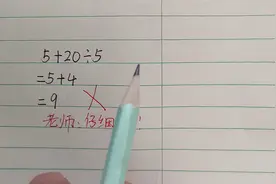 5+20÷5
=5+4
=9
老师:仔细